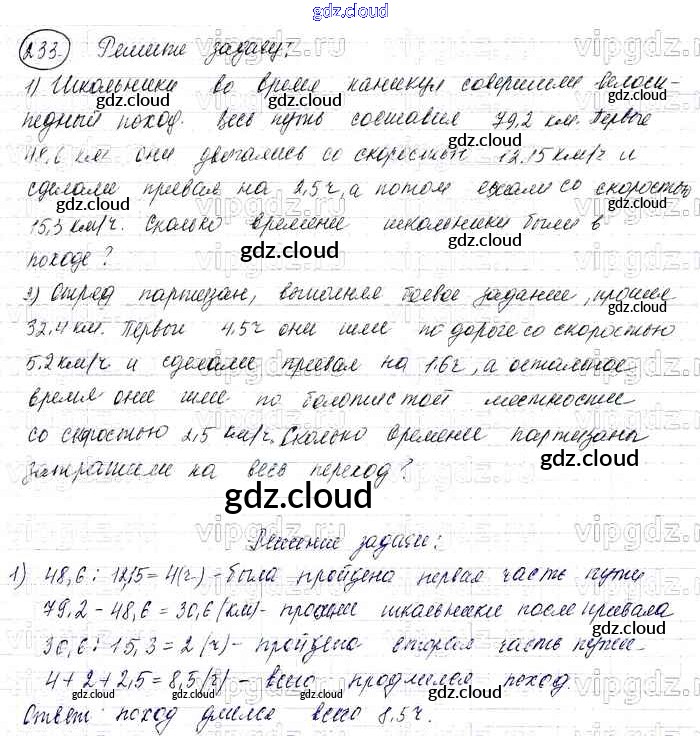 gdz.cloud
233. Решите задачу:
1) Школьники во время каникул совершили велоси-
педный поход. Весь путь составил 79,2 км. Первые
48,6 км они двигались со скоростью 12,15 км/ч и
сделали привал на 2,5 ч, а потом ехали со скоростью
15,3 км/ч. Сколько времени школьники были в
походе?
2) Отряд партизан, выполняя боевое задание, прошел
32,4 км. Первый 4,5 ч они шли по дороге со скоростью
5,2 км/ч и сделали привал на 1,6 ч, а остальное
время они шли по болотистой местности
со скоростью 2,5 км/ч. Сколько времени партизаны
затратили на весь переход?
gdz.cloud
Решение задачи:
1) 48,6 : 12,15 = 4 (ч) - была пройдена первая часть пути
79,2 - 48,6 = 30,6 (км) - прошли школьники после привала
30,6 : 15,3 = 2 (ч) - пройдено вторая часть пути
4 + 2 + 2,5 = 8,5 (ч) - всего продлился поход.
Ответ: поход длился всего 8,5 ч.